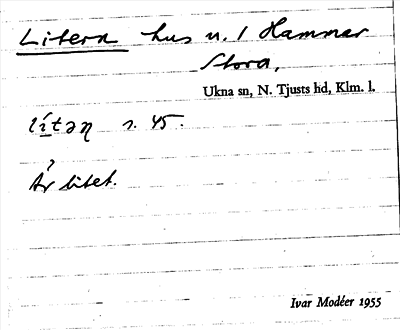 Litera hus u. / Hammar
Stora,
Ukna sn, N. Tjusts hd, Klm. l.
lítəŋ s. 45.
?
Är litet.
Ivar Modéer 1955